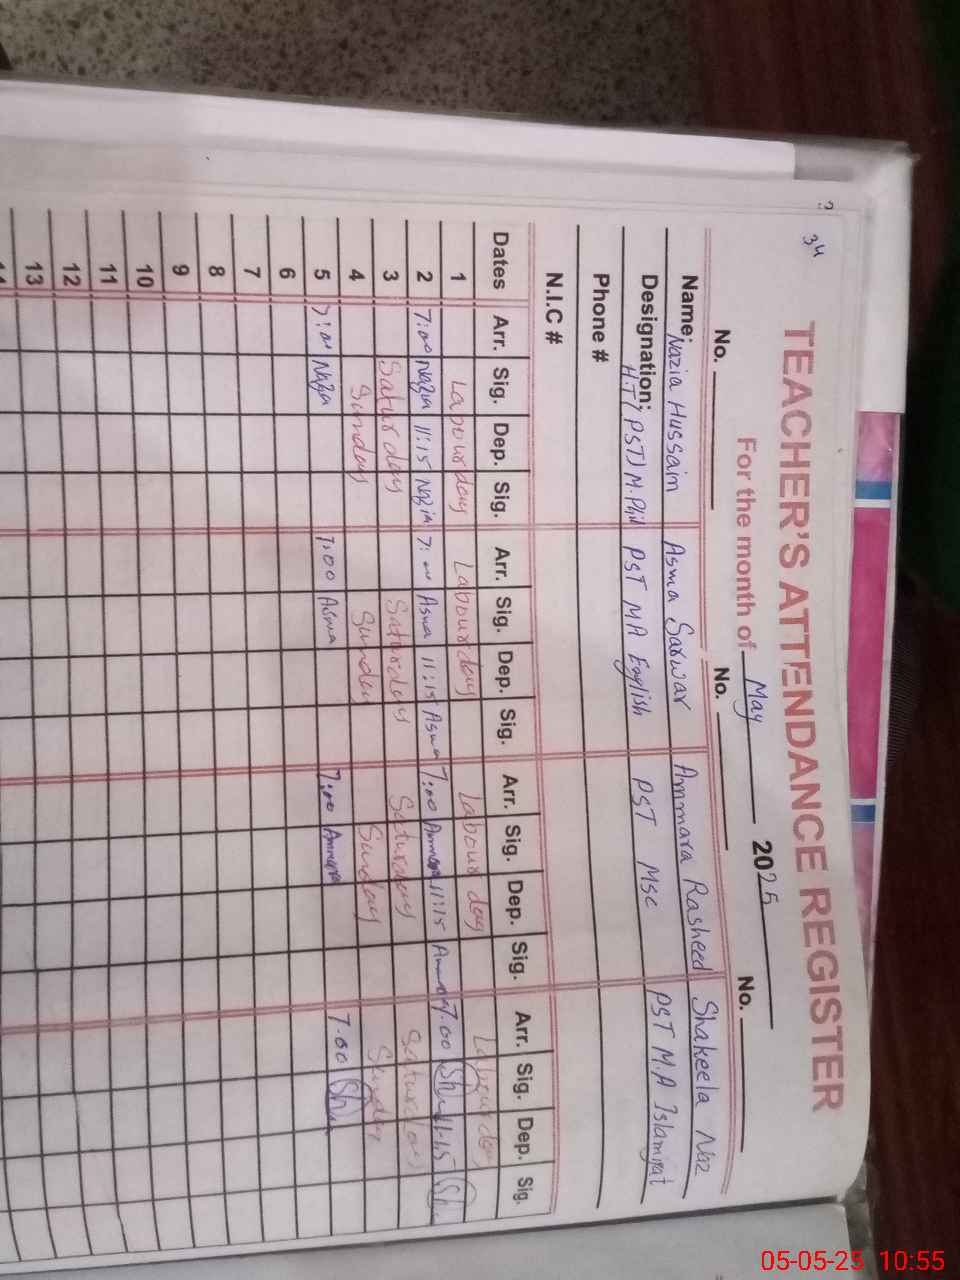 34
TEACHER'S ATTENDANCE REGISTER
For the month of May 2025
No. No. No.
Name: Nazia Hussain Asma Sarwar Ammara Rasheed Shakeela Naz
Designation: H.T (PST) M.Phil PST MA English PST Msc PST M.A Islamiyat
Phone #
N.I.C #
Dates Arr. Sig. Dep. Sig. Arr. Sig. Dep. Sig. Arr. Sig. Dep. Sig. Arr. Sig. Dep. Sig.
1 Labour day Labour day Labour day Labour day
2 7:00 Nazia 11:15 Nazia 7:00 Asma 11:15 Asma 7:00 Ammara 11:15 Ammara 7.00 11-15
3 Saturday Saturday Saturday Saturday
4 Sunday Sunday Sunday Sunday
5 7:00 Nazia 7:00 Asma 7:00 Ammara 7.00
6
7
8
9
10
11
12
13
05-05-25 10:55